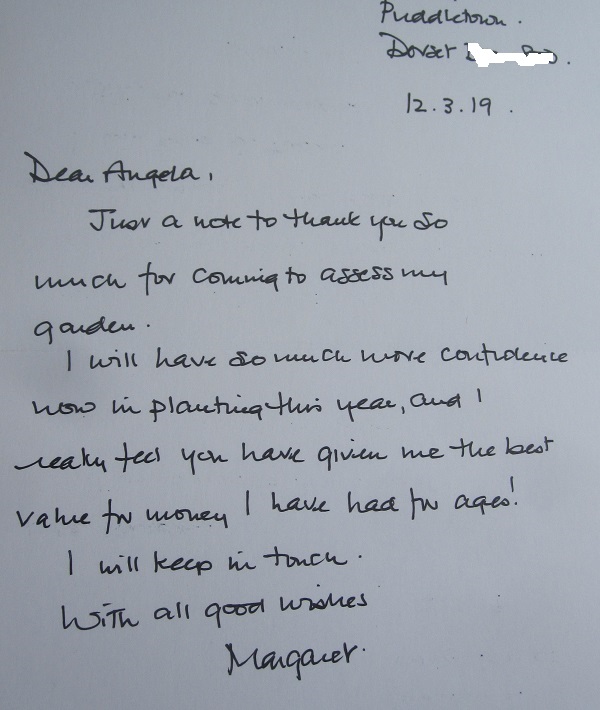 Puddletown.
Dorset
12.3.19.
Dear Angela,
Just a note to thank you so
much for coming to assess my
garden.
I will have so much more confidence
now in planting this year, and I
really feel you have given me the best
value for money I have had for ages!
I will keep in touch.
With all good wishes
Margaret.